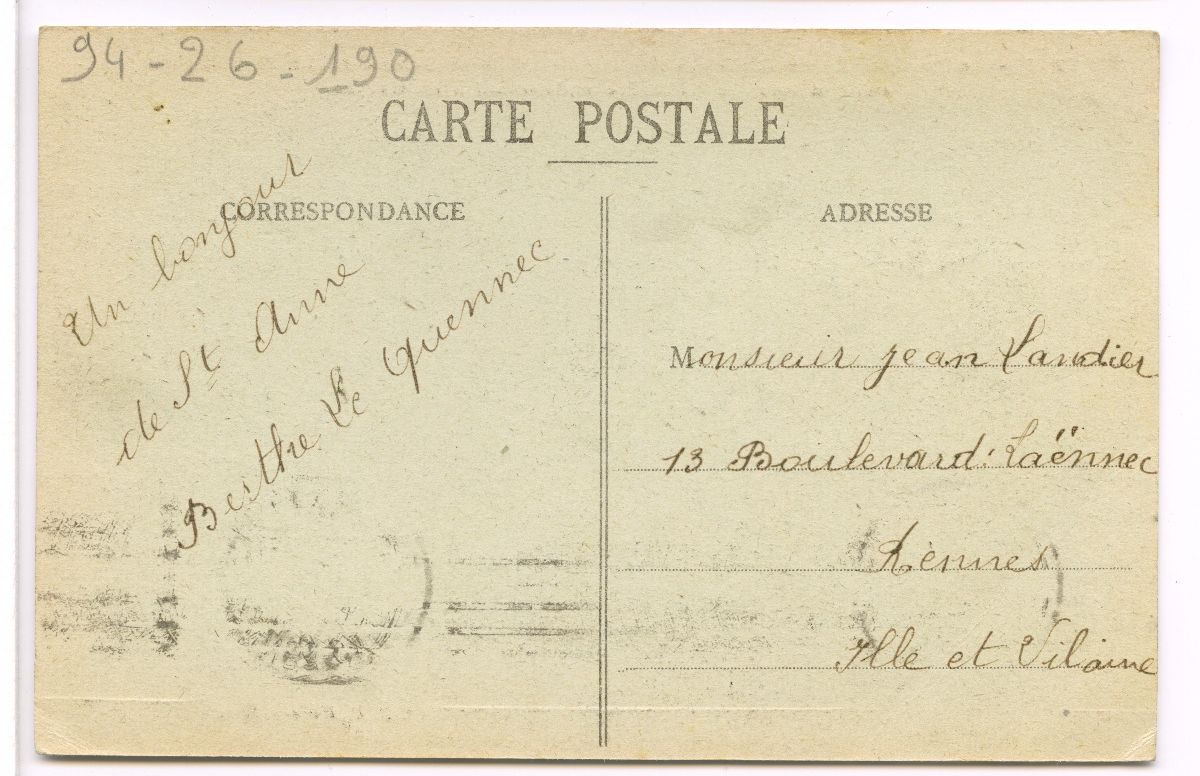 94-26-190
CARTE POSTALE
CORRESPONDANCE
ADRESSE
Un bonjour
de St Anne
Berthe Le Quennec
Monsieur jean Landier
13 Boulevard Laënnec
Rennes
Ille et Vilaine